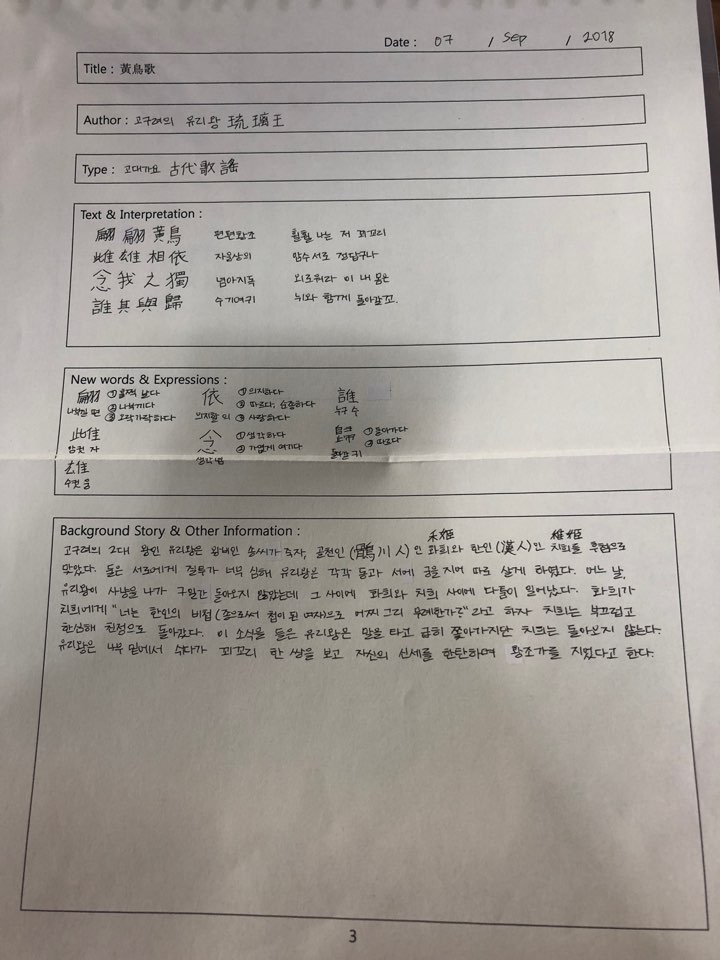 Date : 07 / Sep / 2018
Title : 黃鳥歌
Author : 고구려의 유리왕 琉璃王
Type : 고대가요 古代歌謠
Text & Interpretation :
翩翩黃鳥 편편황조 훨훨 나는 저 꾀꼬리
雌雄相依 자웅상의 암수 서로 정답구나
念我之獨 념아지독 외로워라 이 내 몸은
誰其與歸 수기여귀 뉘와 함께 돌아갈꼬.
New words & Expressions :
翩 ① 훌쩍 날다 依 ① 의지하다 誰
나부낄 편 ② 나부끼다 ② 따르다, 순종하다 누구 수
③ 오락가락하다 의지할 의 ③ 사랑하다
雌 念 ① 생각하다 歸 ① 돌아가다
암컷 자 ② 가엾게 여기다 ② 따르다
생각 념 돌아갈 귀
雄
수컷 웅
Background Story & Other Information :
禾姬 雉姬
고구려의 2대 왕인 유리왕은 왕비인 송씨가 죽자, 골천인 (鶻川人)인 화희와 한인 (漢人)인 치희를 후처로
맞았다. 둘은 서로에게 질투가 너무 심해 유리왕은 각각 동과 서에 궁을 지어 따로 살게 하였다. 어느 날,
유리왕이 사냥을 나가 구일간 돌아오지 않았는데 그 사이에 화희와 치희 사이에 다툼이 일어났다. 화희가
치희에게 "너는 한인의 비첩 (종으로써 첩이 된 여자)으로 어찌 그리 무례한가?" 라고 하자 치희는 부끄럽고
한심해 친정으로 돌아갔다. 이 소식을 들은 유리왕은 말을 타고 급히 쫓아가지만 치희는 돌아오지 않는다.
유리왕은 나무 밑에서 쉬다가 꾀꼬리 한 쌍을 보고 자신의 신세를 한탄하며 황조가를 지었다고 한다.
3